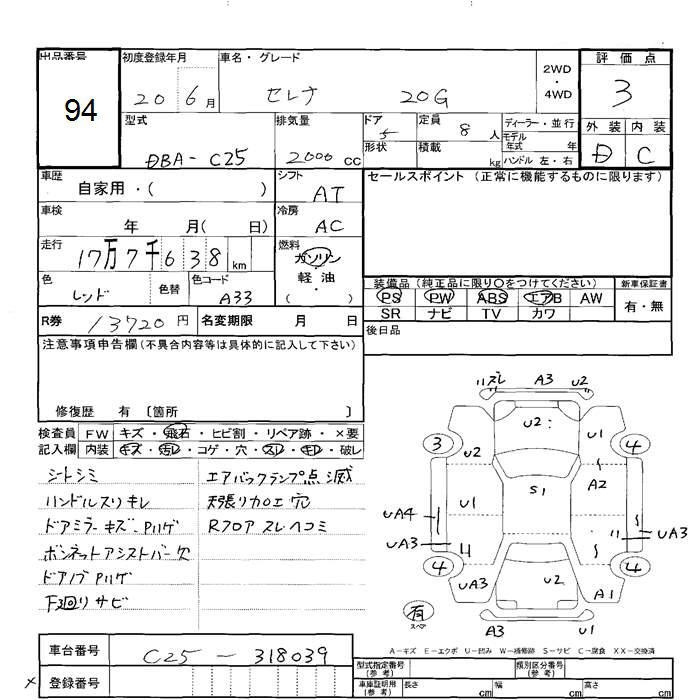 出品番号 初度登録年月 車名・グレード 評価点
94 20 6月 セレナ 20G 2WD・4WD 3
型式 排気量 ドア 定員 ディーラー・並行 外装 内装
DBA-C25 2000cc 5 8人 モデル年式 年 D C
形状 積載 kg ハンドル 左・右
車歴 シフト セールスポイント(正常に機能するものに限ります)
自家用・( ) AT
車検 冷房
年 月( 日) AC
走行 燃料
17万7千638km ガソリン・軽油・( )
色 色替 色コード
レッド A33
装備品(純正品に限り○をつけてください) 新車保証書
PS PW ABS エアB AW 有・無
SR ナビ TV カワ
R券 13720円 名変期限 月 日
後日品
注意事項申告欄(不具合内容等は具体的に記入して下さい)
修復歴 有〔箇所 〕
検査員 FW キズ・飛石・ヒビ割・リペア跡・×要
記入欄 内装 キズ・汚レ・コゲ・穴・スレ・キレ・破レ
シートシミ エアバックランプ点滅
ハンドルスリキレ 天張リカロエ穴
ドアミラーキズ・Pハゲ Rフロアスレヘコミ
ボンネットアシストバー欠
ドアノブPハゲ
下回リサビ
ズレ A3 U2
3 U2 U2 U1 4
U1 S1 A2
UA4
UA3 UA3
4 UA3 U2 A1 4
有 スペア A3 U1
A-キズ E-エクボ U-凹み W-補修跡 S-サビ C-腐食 XX-交換済
車台番号 C25-318039
× 登録番号
型式指定番号(参考) 類別区分番号(参考)
車庫証明用(参考) 長さ cm 幅 cm 高さ cm